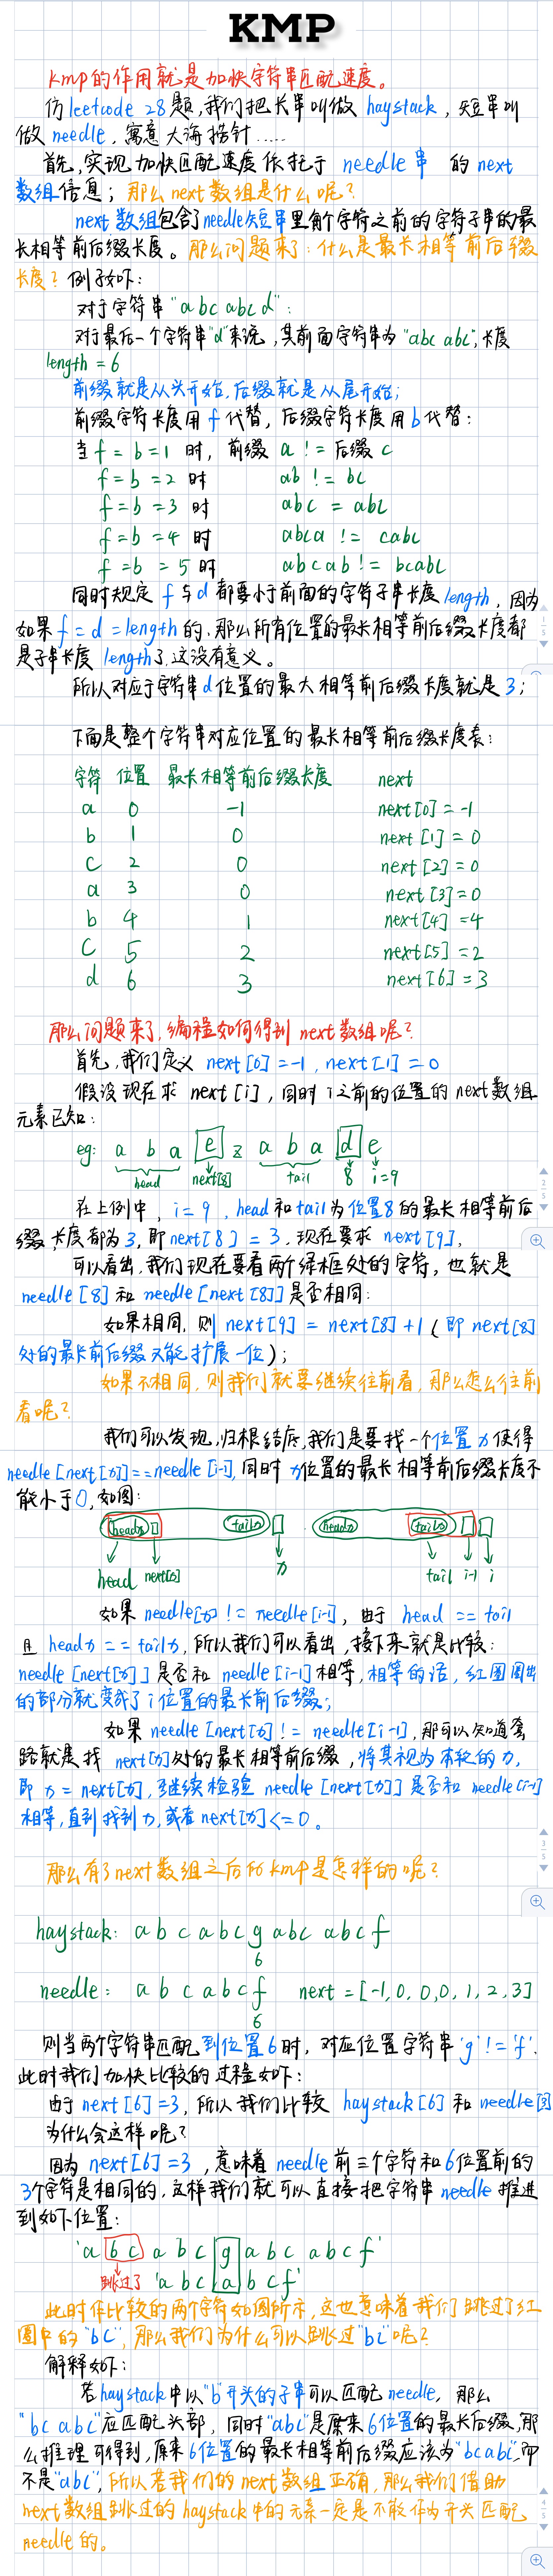 KMP
kmp的作用就是加快字符串匹配速度。
仿leetcode 28题,我们把长串叫做 haystack, 短串叫
做 needle, 寓意大海捞针.....
首先,实现加快匹配速度依托于 needle串 的 next
数组信息; 那么next数组是什么呢?
next数组包含了needle短串里每个字符之前的字符子串的最
长相等前后缀长度。那么问题来了:什么是最长相等前后缀
长度?例子如下:
对于字符串"abc abc d":
对于最后一个字符串"d"来说,其前面字符串为"abc abc",长度
length = 6
前缀就是从头开始,后缀就是从尾开始;
前缀字符长度用f代替,后缀字符长度用b代替:
当 f = b = 1 时, 前缀 a != 后缀 c
f = b = 2 时 ab != bc
f = b = 3 时 abc = abc
f = b = 4 时 abca != cabc
f = b = 5 时 abcab != bcabc
同时规定 f 与 d 都要小于前面的字符子串长度 length, 因为
如果 f = d = length 的,那么所有位置的最长相等前后缀长度都
是子串长度 length了,这没有意义。
所以对应于字符串d位置的最大相等前后缀长度就是3;
下面是整个字符串对应位置的最长相等前后缀长度表:
字符 位置 最长相等前后缀长度 next
a 0 -1 next[0] = -1
b 1 0 next[1] = 0
c 2 0 next[2] = 0
a 3 0 next[3] = 0
b 4 1 next[4] = 4
c 5 2 next[5] = 2
d 6 3 next[6] = 3
那么问题来了,编程如何得到 next数组呢?
首先,我们定义 next[0] = -1, next[1] = 0
假设现在求 next[i], 同时i之前的位置的next数组
元素已知:
eg: a b a e z a b a d e
head next[8] tail 8 i=9
在上例中, i = 9, head和tail为位置8的最长相等前后
缀,长度都为3,即next[8] = 3,现在要求 next[9],
可以看出,我们现在要看两个绿框处的字符,也就是
needle[8] 和 needle[next[8]]是否相同:
如果相同,则 next[9] = next[8] + 1 (即 next[8]
处的最长前后缀又能扩展一位);
如果不相同,则我们就要继续往前看,那么怎么往前
看呢?
我们可以发现,归根结底,我们是要找一个位置 x 使得
needle[next[x]] == needle[i-1], 同时 x位置的最长相等前后缀长度不
能小于0,如图:
headx tailx headx tailx
head next[x] x tail i-1 i
如果 needle[x] != needle[i-1], 由于 head == tail
且 headx == tailx, 所以我们可以看出,接下来就是比较:
needle[next[x]] 是否和 needle[i-1]相等,相等的话,红圈圈出
的部分就变成了i位置的最长前后缀;
如果 needle[next[x]] != needle[i-1], 那可以知道套
路就是找 next[x]处的最长相等前后缀,将其视为本轮的 x,
即 x = next[x], 继续检验 needle[next[x]] 是否和 needle[i-1]
相等,直到找到x,或者next[x] <= 0。
那么有了next数组之后的kmp是怎样的呢?
haystack: a b c a b c g abc abc f
6
needle: a b c a b c f next = [-1, 0, 0, 0, 1, 2, 3]
6
则当两个字符串匹配到位置6时,对应位置字符串'g' != 'f'.
此时我们加快比较的过程如下:
由于 next[6] = 3, 所以我们比较 haystack[6] 和 needle[3]
为什么会这样呢?
因为 next[6] = 3, 意味着 needle 前三个字符和6位置前的
3个字符是相同的,这样我们就可以直接把字符串 needle 推进
到如下位置:
'a b c a b c g a b c a b c f'
跳过了 'a b c a b c f'
此时作比较的两个字符如图所示,这也意味着我们跳过了红
圈中的"bc",那么我们为什么可以跳过"bc"呢?
解释如下:
若haystack中以"b"开头的子串可以匹配needle, 那么
"bc abc"应匹配头部,同时"abc"是原来6位置的最长后缀,那
么推理可得到,原来6位置的最长相等前后缀应该为"bcabc",而
不是"abc",所以若我们的next数组正确,那么我们借助
next数组跳过的haystack中的元素一定是不能作为开头匹配
needle的。
1
5
2
5
3
5
4
5